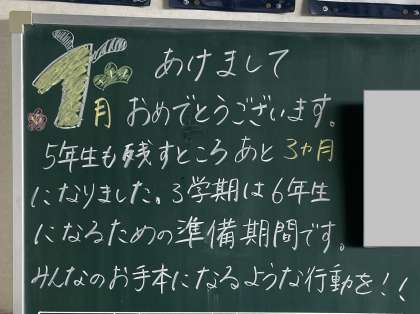 あけまして
1月 おめでとうございます。
5年生も残すところあと3ヵ月
になりました。3学期は6年生
になるための準備期間です。
みんなのお手本になるような行動を!!